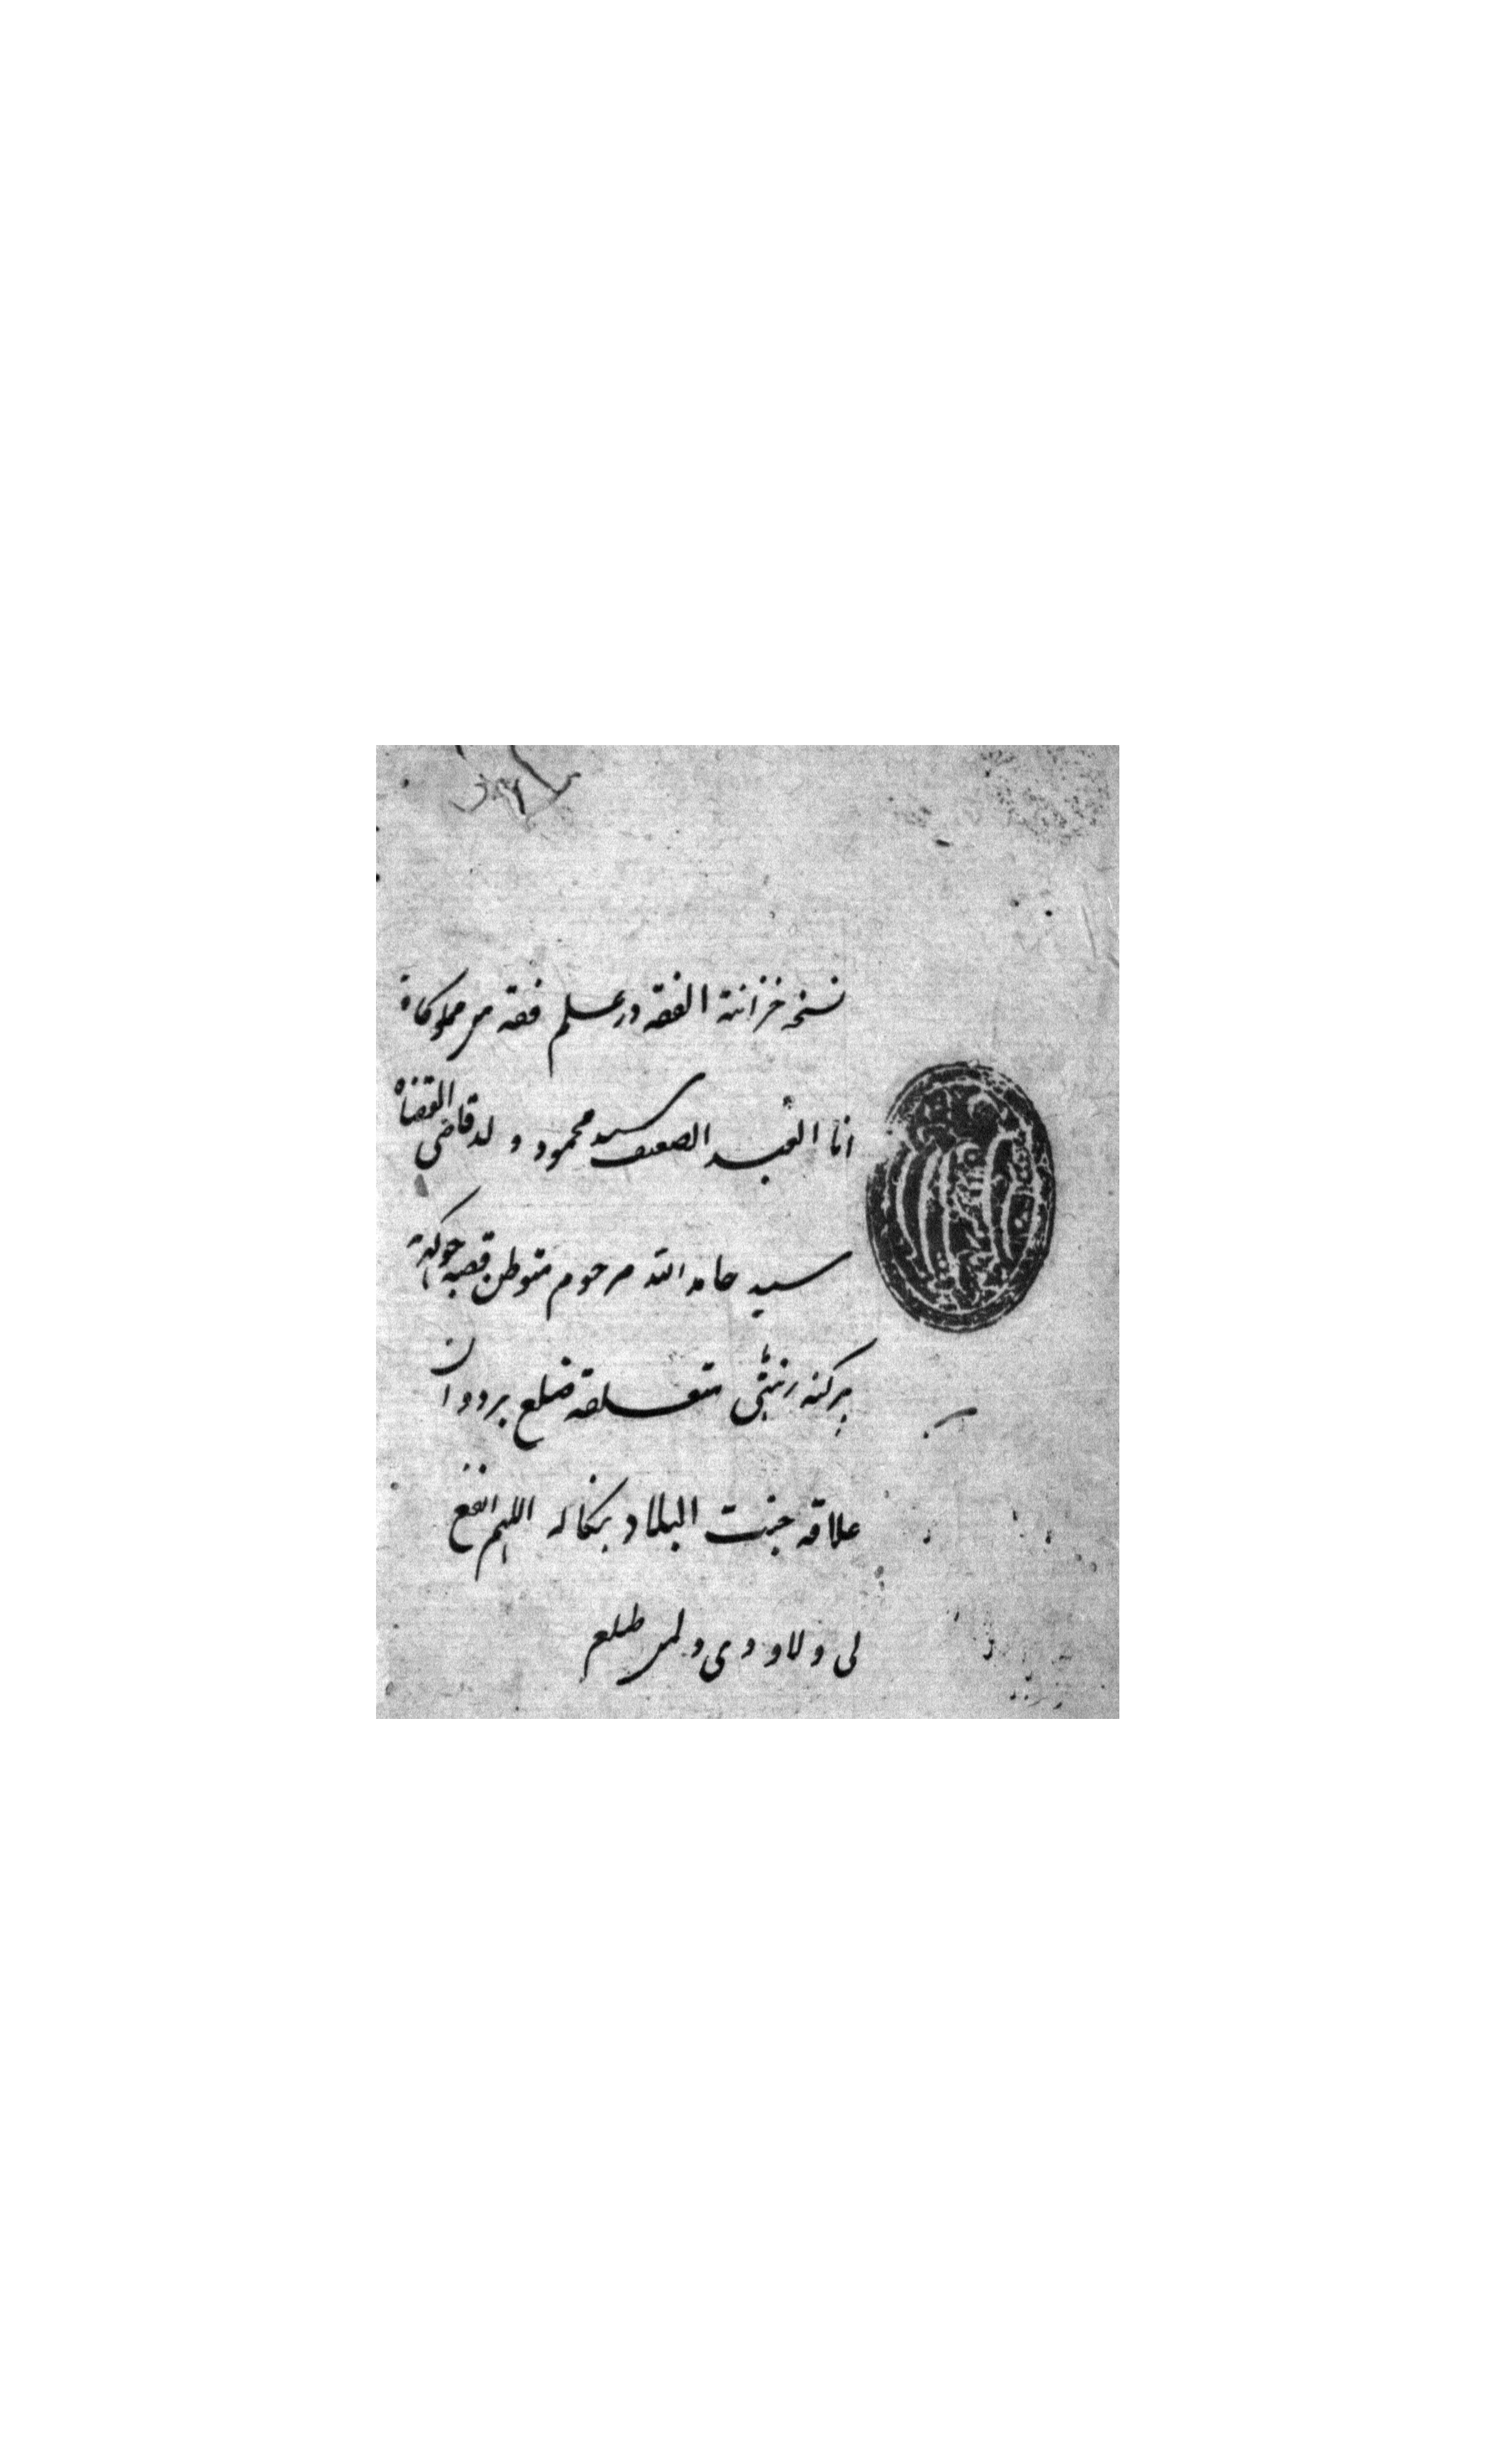 نسخه خزانة الفقه در علم فقه من مملوکات
انا العبد الضعیف سید محمود ولد قاضی القضاة
سید حامد الله مرحوم متوطن قصبه
پرکنه متعلقه ضلع بردوان
علاقه جنت البلاد بنکاله اللهم انفع
لی ولاولادی ولمن طلع